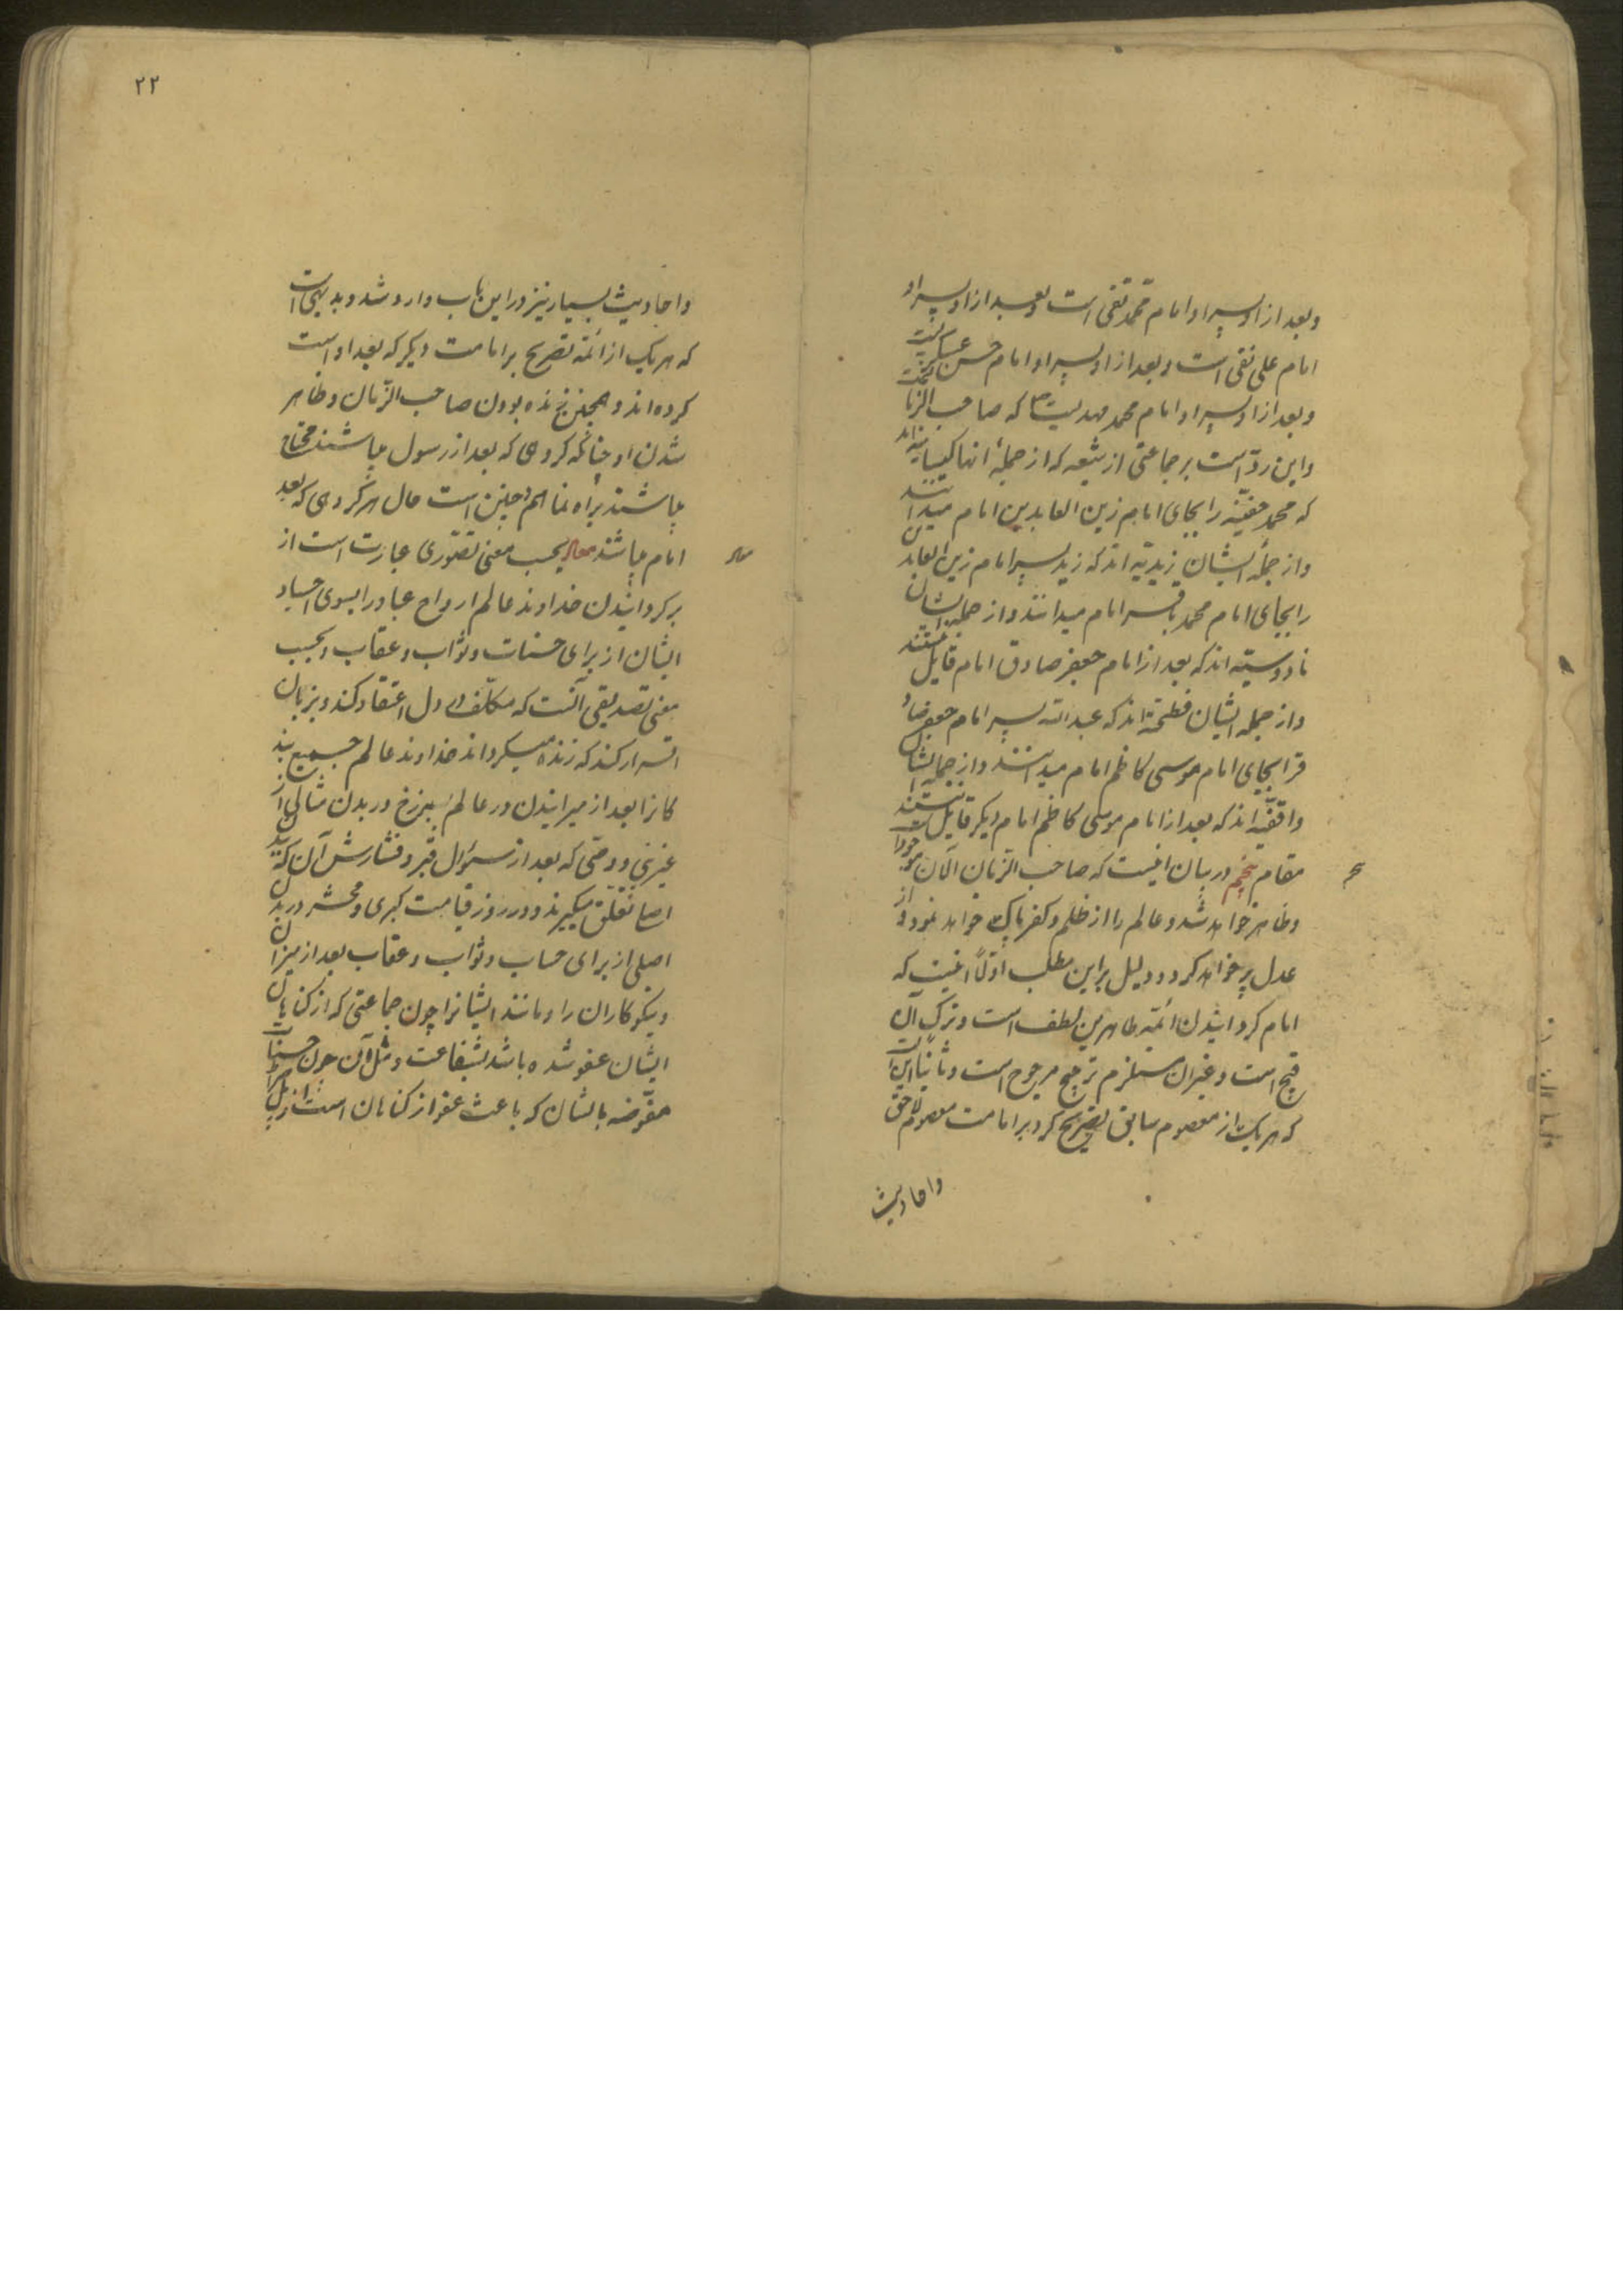 وبعد از او پسر او امام محمد تقی است و بعد از او پسر او
امام علی نقی است و بعد از او پسر او امام حسن عسکریست
وبعد از او پسر او امام محمد مهدیست که صاحب الزمانست
واین ردّ است بر جماعتی از شیعه که از جملهٔ انها کیسانیه اند
که محمد حنفیّه را بجای امام زین العابدین امام میدانند
واز جملهٔ ایشان زیدیّه اند که زید پسر امام زین العابدین
را بجای امام محمد باقر امام میدانند واز جملهٔ ایشان
ناووسیّه اند که بعد از امام جعفر صادق امام قایل نیستند
واز جمله ایشان فطحیّه اند که عبدالله پسر امام جعفر صاد
قرا بجای امام موسی کاظم امام میدانند واز جمله ایشان
واقفیّه اند که بعد از امام موسی کاظم امام دیکر قایل نیستند
مقام پنجم در بیان اینست که صاحب الزمان الآن موجود است
وظاهر خواهد شد و عالم را از ظلم و کفر پاک خواهد نمود و از
عدل پر خواهد کرد و دلیل بر این مطلب اوّلاً اینست که
امام کردانیدن ائمّه طاهرین لطف است و ترک آن
قبیح است و غیر آن مستلزم ترجیح مرجوح است و ثانیاً این است
که هر یک از معصوم سابق تصریح کرد بر امامت معصوم لاحق
واحادیث
۲۲
واحادیث بسیار نیز در این باب وارد شد و بدیهی است
که هر یک از ائمّه تصریح بر امامت دیکر که بعد او است
کرده اند و همچنین زنده بودن صاحب الزّمان و ظاهر
شدن او چنانکه کروهی که بعد از رسول میباشند محتاج
میباشند براه نما همچنین است حال هر کروهی که بعد
امام میباشند معاد بحسب معنی تصوّری عبارت است از
برکردانیدن خداوند عالم ارواح عباد را بسوی اجساد
ایشان از برای حسنات و ثواب و عقاب و بحسب
معنی تصدیقی آنست که مکلّف در دل اعتقاد کند و بزبان
اقرار کند که زنده میکرداند خداوند عالم جمیع بند
کانرا بعد از میرانیدن در عالم برزخ در بدن مثالی از
غیر که بعد از سؤال قبر و فشارش آن که ببدن
اصلی تعلّق میکیرند و در روز قیامت کبری و محشر در بدن
اصلی از برای حساب و ثواب و عقاب بعد از میزان
ونیکوکاران را و مانند ایشانرا چون جماعتی که از کناهان
ایشان عفو شده باشد بشفاعت و مثل آن چون حسنات
مفوّضه بایشان که باعث عفو از کناهان است از پل